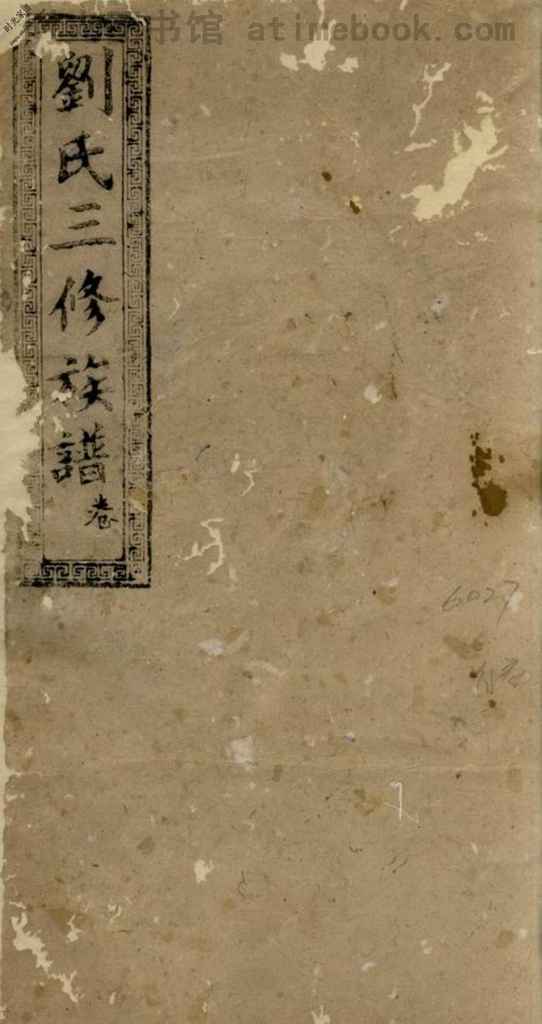 书馆 atimebook.com
劉氏三修族譜
卷
6027